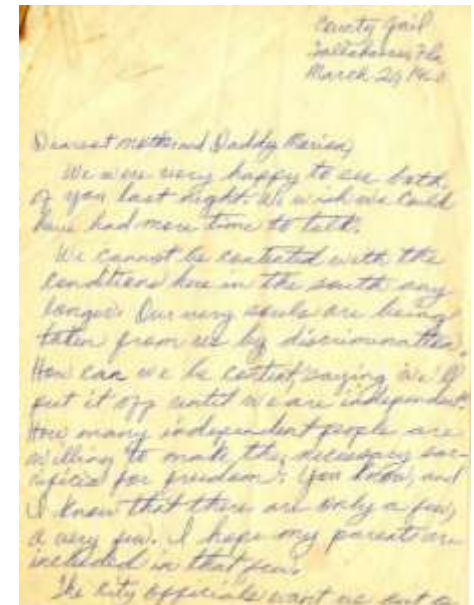 County Jail
Tallahassee Fla
March 20, 1960
Dearest Mother and Daddy Marion,
We were very happy to see both
of you last night. We wish we could
have had more time to talk.
We cannot be contented with the
conditions here in the south any
longer. Our very souls are being
taken from us by discrimination.
How can we be content, saying we'll
put it off until we are independent.
How many independent people are
willing to make the necessary sac-
rifices for freedom? You know, and
I know that there are only a few,
a very few. I hope my parents are
included in that few.
The city officials want us out